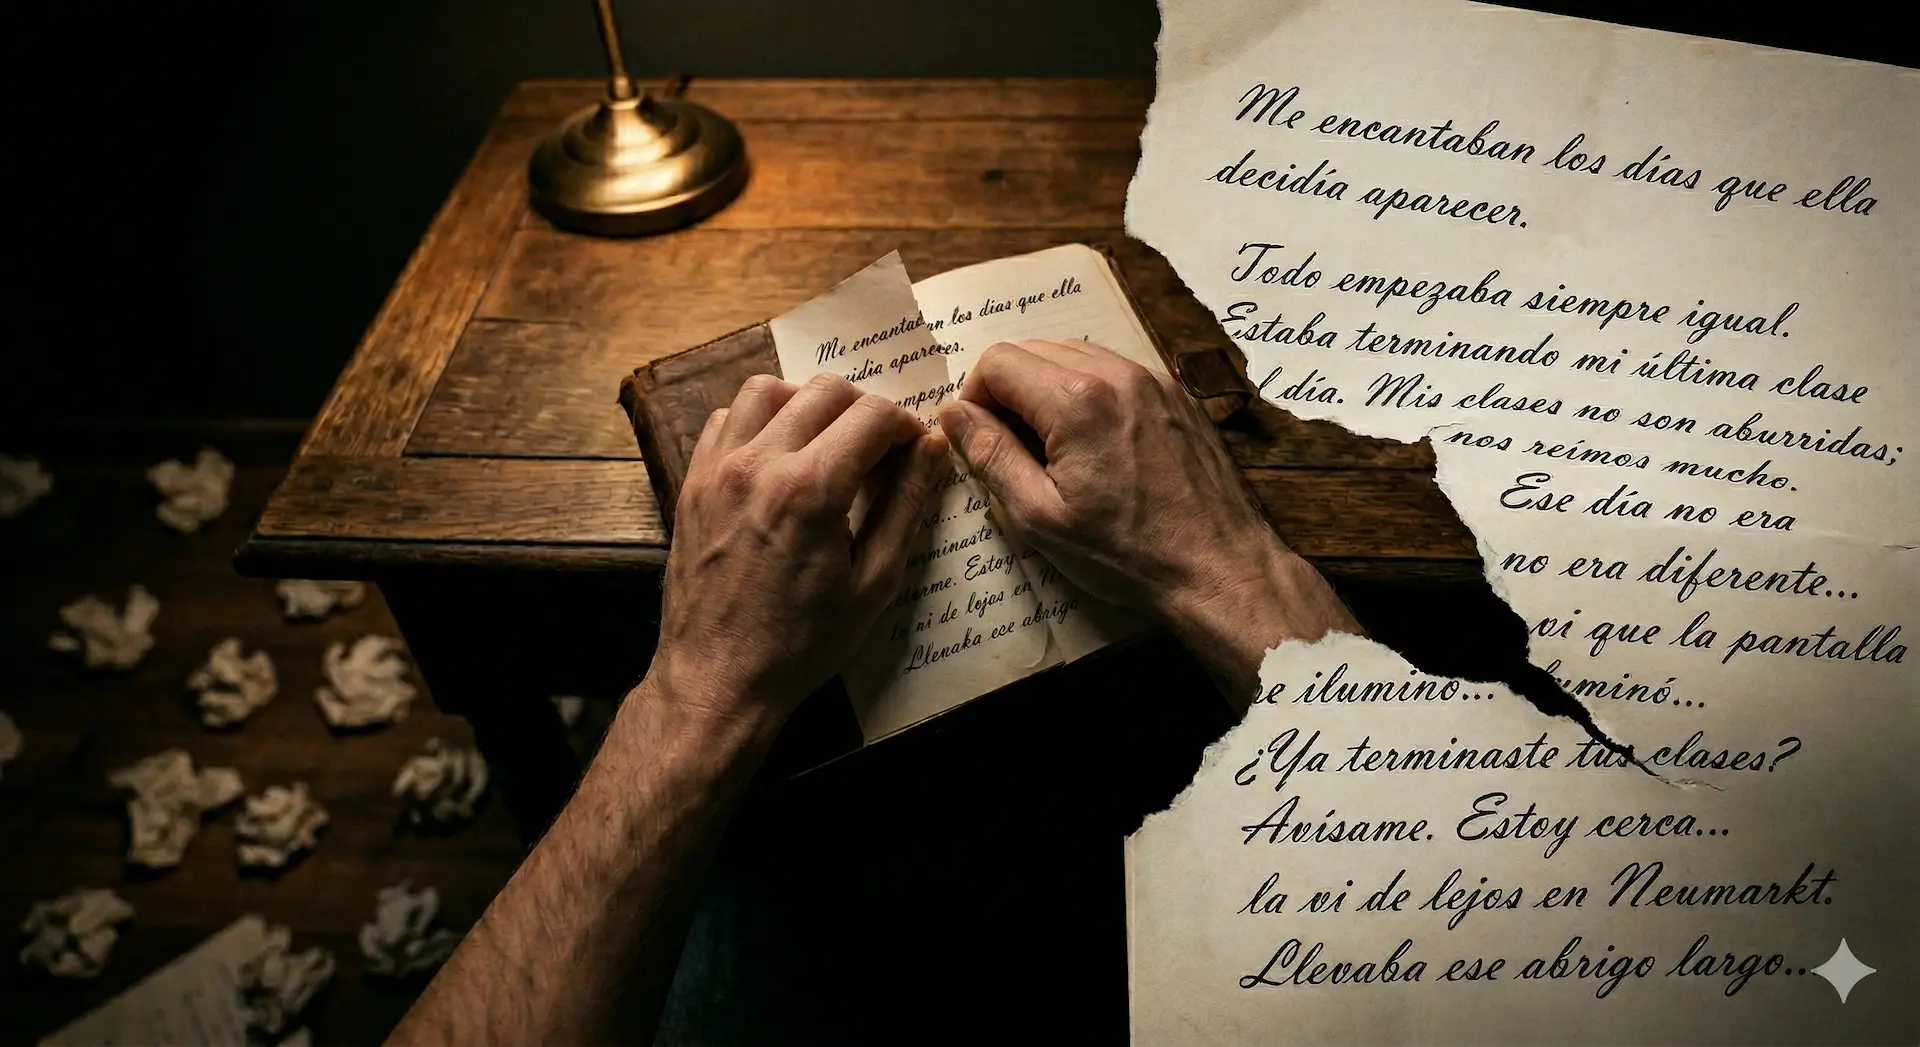 Me encantaban los días que ella
decidía aparecer.
Todo empezaba siempre igual.
Estaba terminando mi última clase
l día. Mis clases no son aburridas;
nos reímos mucho.
Ese día no era
no era diferente...
vi que la pantalla
e ilumino... minó...
¿Ya terminaste tus clases?
Avísame. Estoy cerca...
la vi de lejos en Neumarkt.
Llevaba ese abrigo largo...
Me encantaban los dias que ella
idia aparec es.
empezab
erminaste
Estoy
ni de lojas en
Llenaka ece abrigo